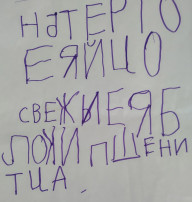 НАТЕРТО
ЕЯЙЦО
СВЕЖИЕЯБ
ЛОКИ ПШЕНИ
ТЦА.